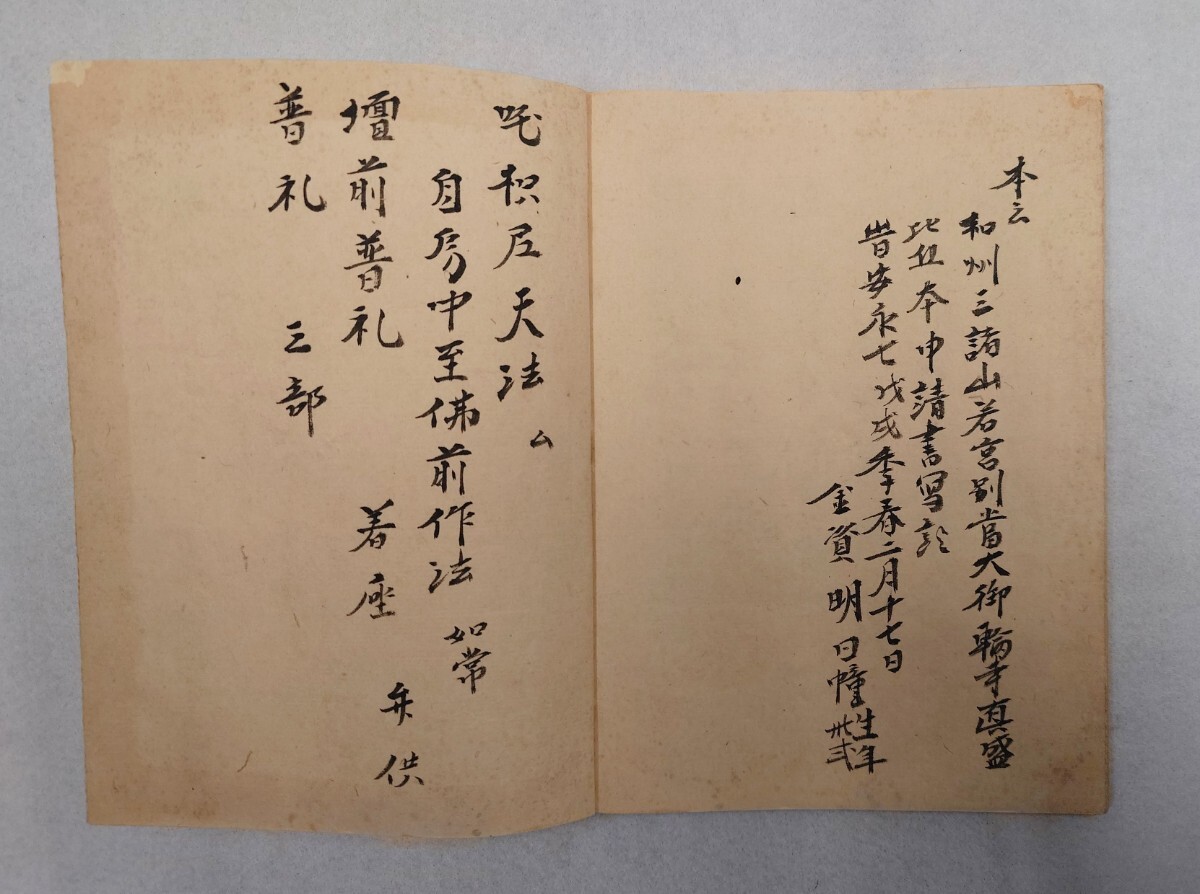 本云
和州三諸山若宮別當大御輪寺真盛
比丘本申請書写訖
旹安永七戊戌季春二月十七日
金資明日幢 生年
卅弐
吒枳尼天法 ム
自房中至佛前作法 如常
壇前普礼 着座 弁供
普礼 三部